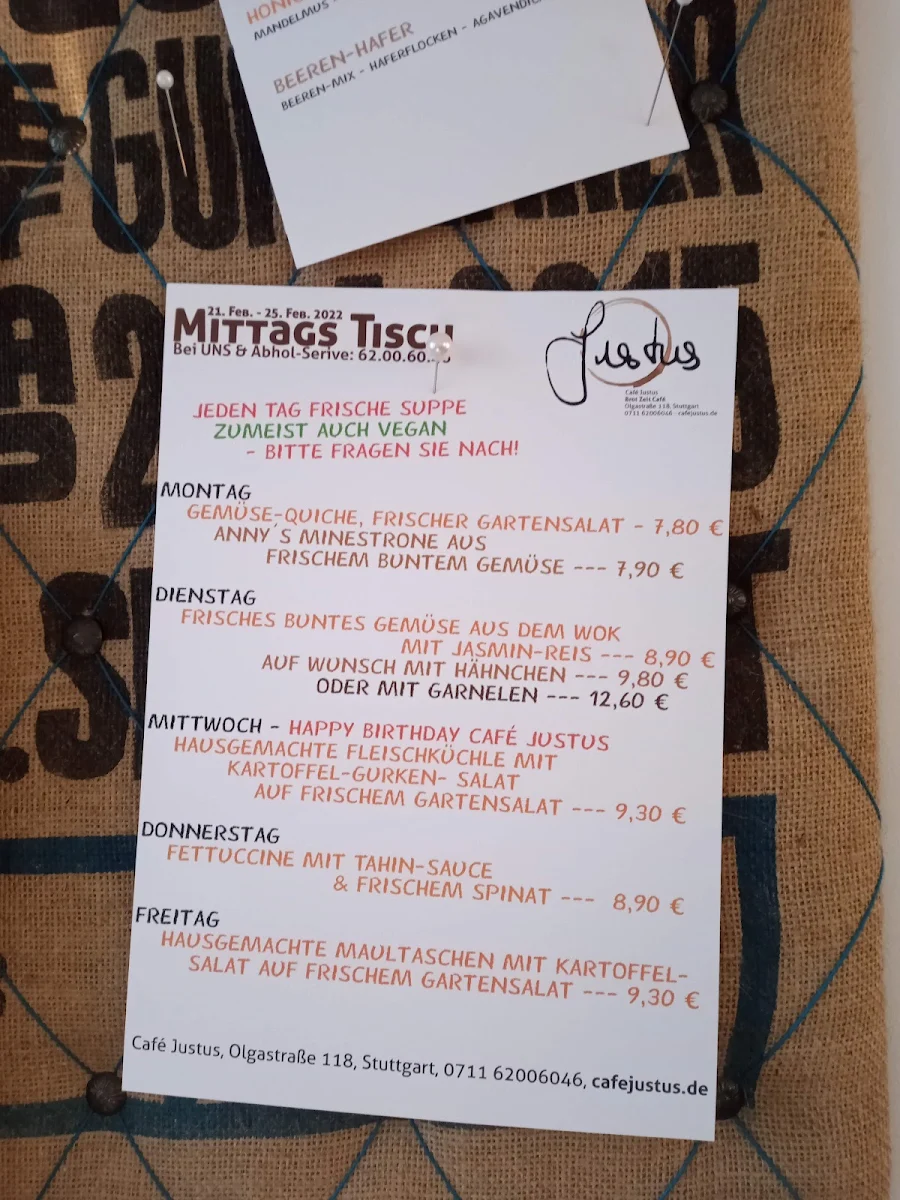 MANDELMUS -
BEEREN-HAFER
BEEREN-MIX - HAFERFLOCKEN -
21. Feb. - 25. Feb. 2022
Mittags Tisch
Bei UNS & Abhol-Serive: 62.00.60.
Justus
Café Justus
Brot Zeit Café
Olgastraße 118, Stuttgart
0711 62006046 - cafejustus.de
JEDEN TAG FRISCHE SUPPE
ZUMEIST AUCH VEGAN
- BITTE FRAGEN SIE NACH!
MONTAG
GEMÜSE-QUICHE, FRISCHER GARTENSALAT - 7,80 €
ANNY´S MINESTRONE AUS
FRISCHEM BUNTEM GEMÜSE --- 7,90 €
DIENSTAG
FRISCHES BUNTES GEMÜSE AUS DEM WOK
MIT JASMIN-REIS --- 8,90 €
AUF WUNSCH MIT HÄHNCHEN --- 9,80 €
ODER MIT GARNELEN --- 12,60 €
MITTWOCH - HAPPY BIRTHDAY CAFÉ JUSTUS
HAUSGEMACHTE FLEISCHKÜCHLE MIT
KARTOFFEL-GURKEN- SALAT
AUF FRISCHEM GARTENSALAT --- 9,30 €
DONNERSTAG
FETTUCCINE MIT TAHIN-SAUCE
& FRISCHEM SPINAT --- 8,90 €
FREITAG
HAUSGEMACHTE MAULTASCHEN MIT KARTOFFEL-
SALAT AUF FRISCHEM GARTENSALAT --- 9,30 €
Café Justus, Olgastraße 118, Stuttgart, 0711 62006046, cafejustus.de